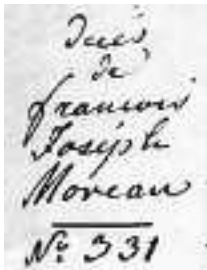 décès
de
francois
Joseph
Moreau
N° 331